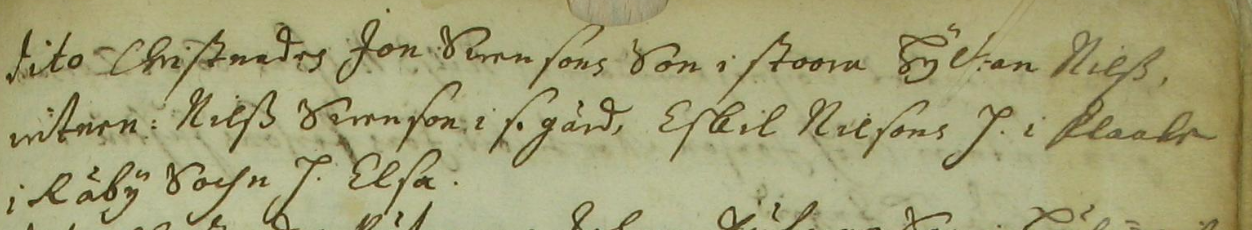 dito Christnades Jon Svensons Son i stoora Sÿlt:an Nilß,
witnen: Nilß Svenson i s. gård, Eskil Nilsons H. i
i Råbÿ Sochn H. Elsa.